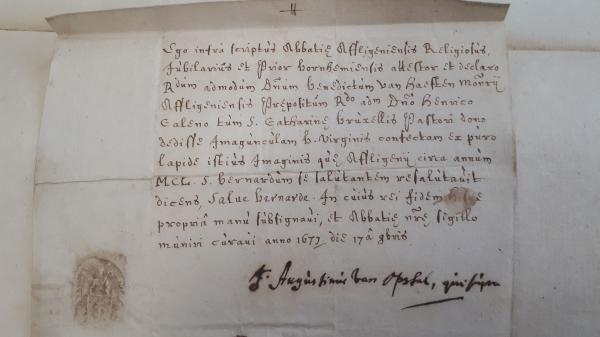 Ego infra scriptus Abbatię Affligeniensis Religiosus,
Iubilarius et Prior bornhemiensis attestor et declaro
Rdum admodum Dnum benedictum van Haeften Monrij
Affligeniensis Prępositum Rdo adm Dno Henrico
Caleno tum S. Catharinę bruxellis Pastori dono
dedisse Imagunculam b. Virginis confectam ex puro
lapide istius Imaginis quę Affligenij circa annum
MCL. S. bernardum se salutantem resalutavit
dicens, Salue bernarde. In cuius rei fidem
propriâ manu subsignavi, et Abbatię nrę sigillo
muniri curavi anno 1673 die 17â 9bris.
f. Augustinus van Opstal, qui supra